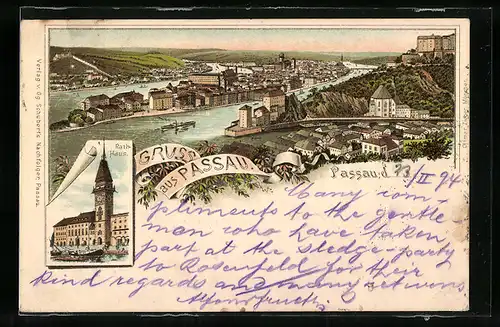 Verlag v. Gg. Schuberts Nachfolger, Passau.
Rath-
Haus.
GRUSS
aus PASSAU.
Passau, d. 13/II 94
Many com-
pliments to the gentle
men who have taken
part at the sledge-party
to Rosenfeld for their
kind regards and many returns